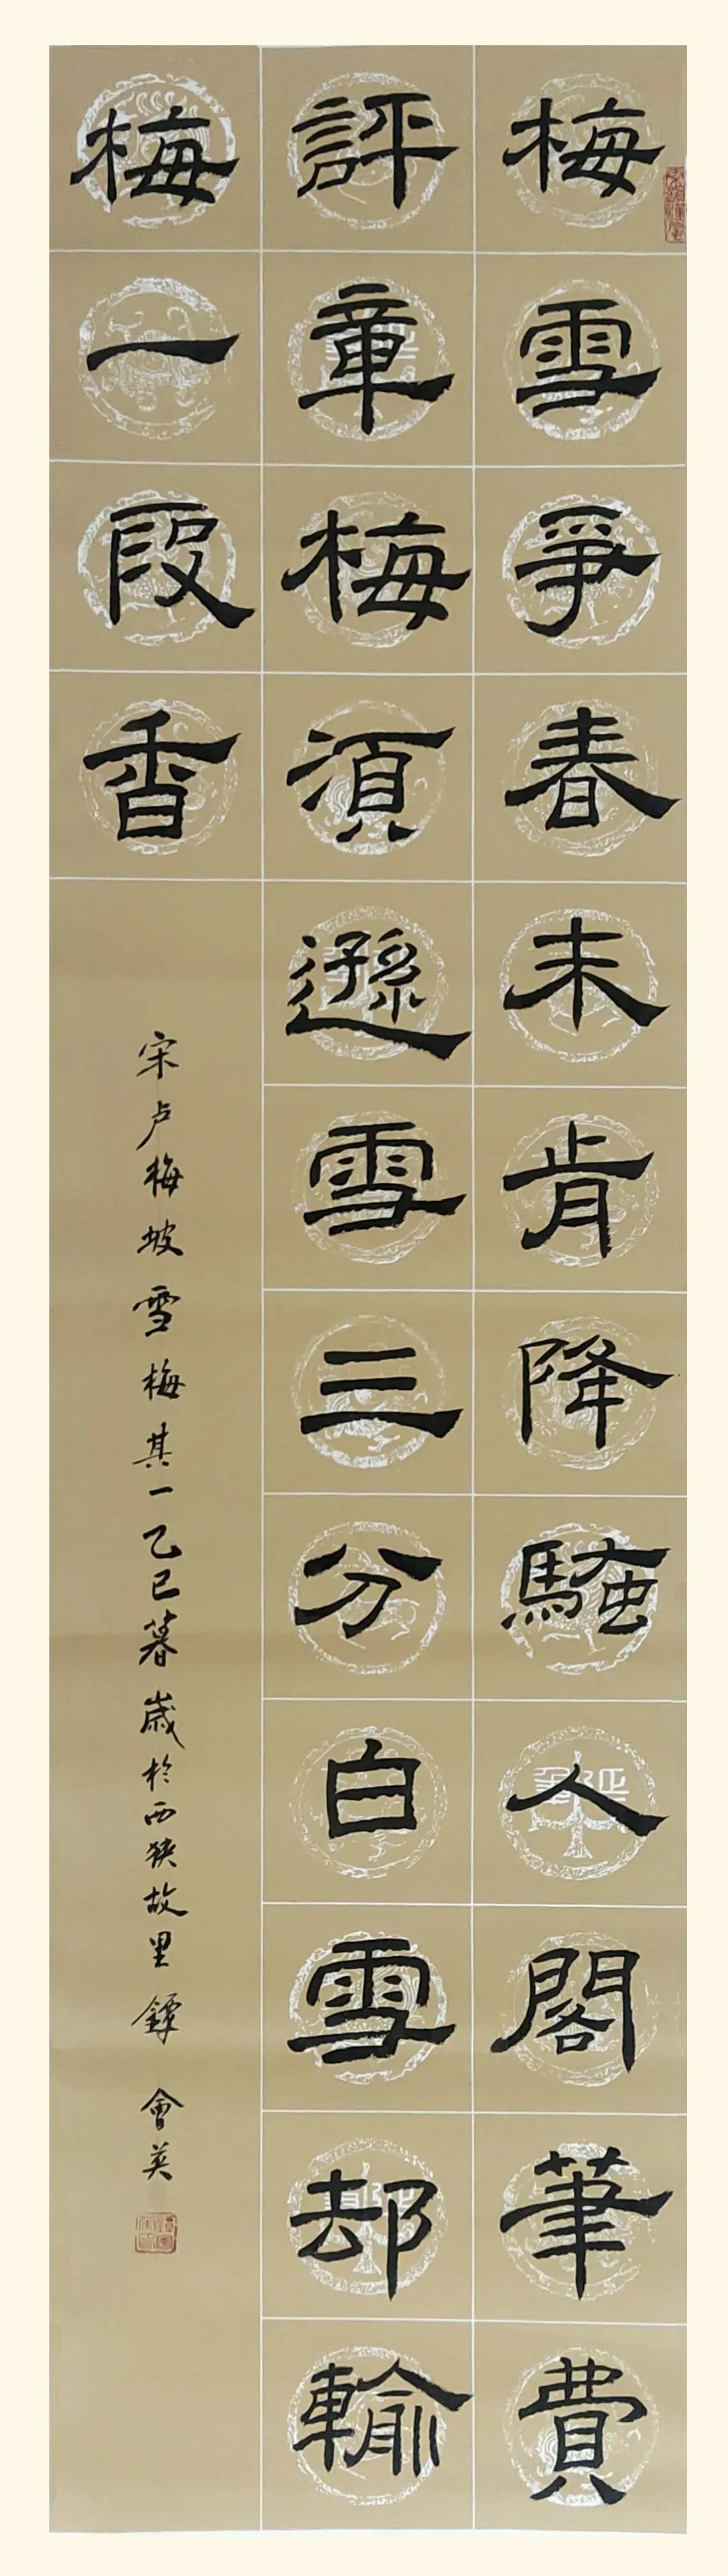 梅雪爭春未肯降騷人閣筆費
評章梅須遜雪三分白雪却輸
梅一段香
宋卢梅坡雪梅其一乙巳暮歲於西狹故里鐔會英